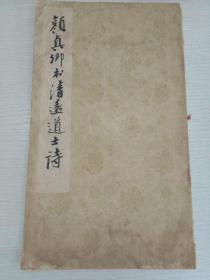 顏真卿书清遠道士詩